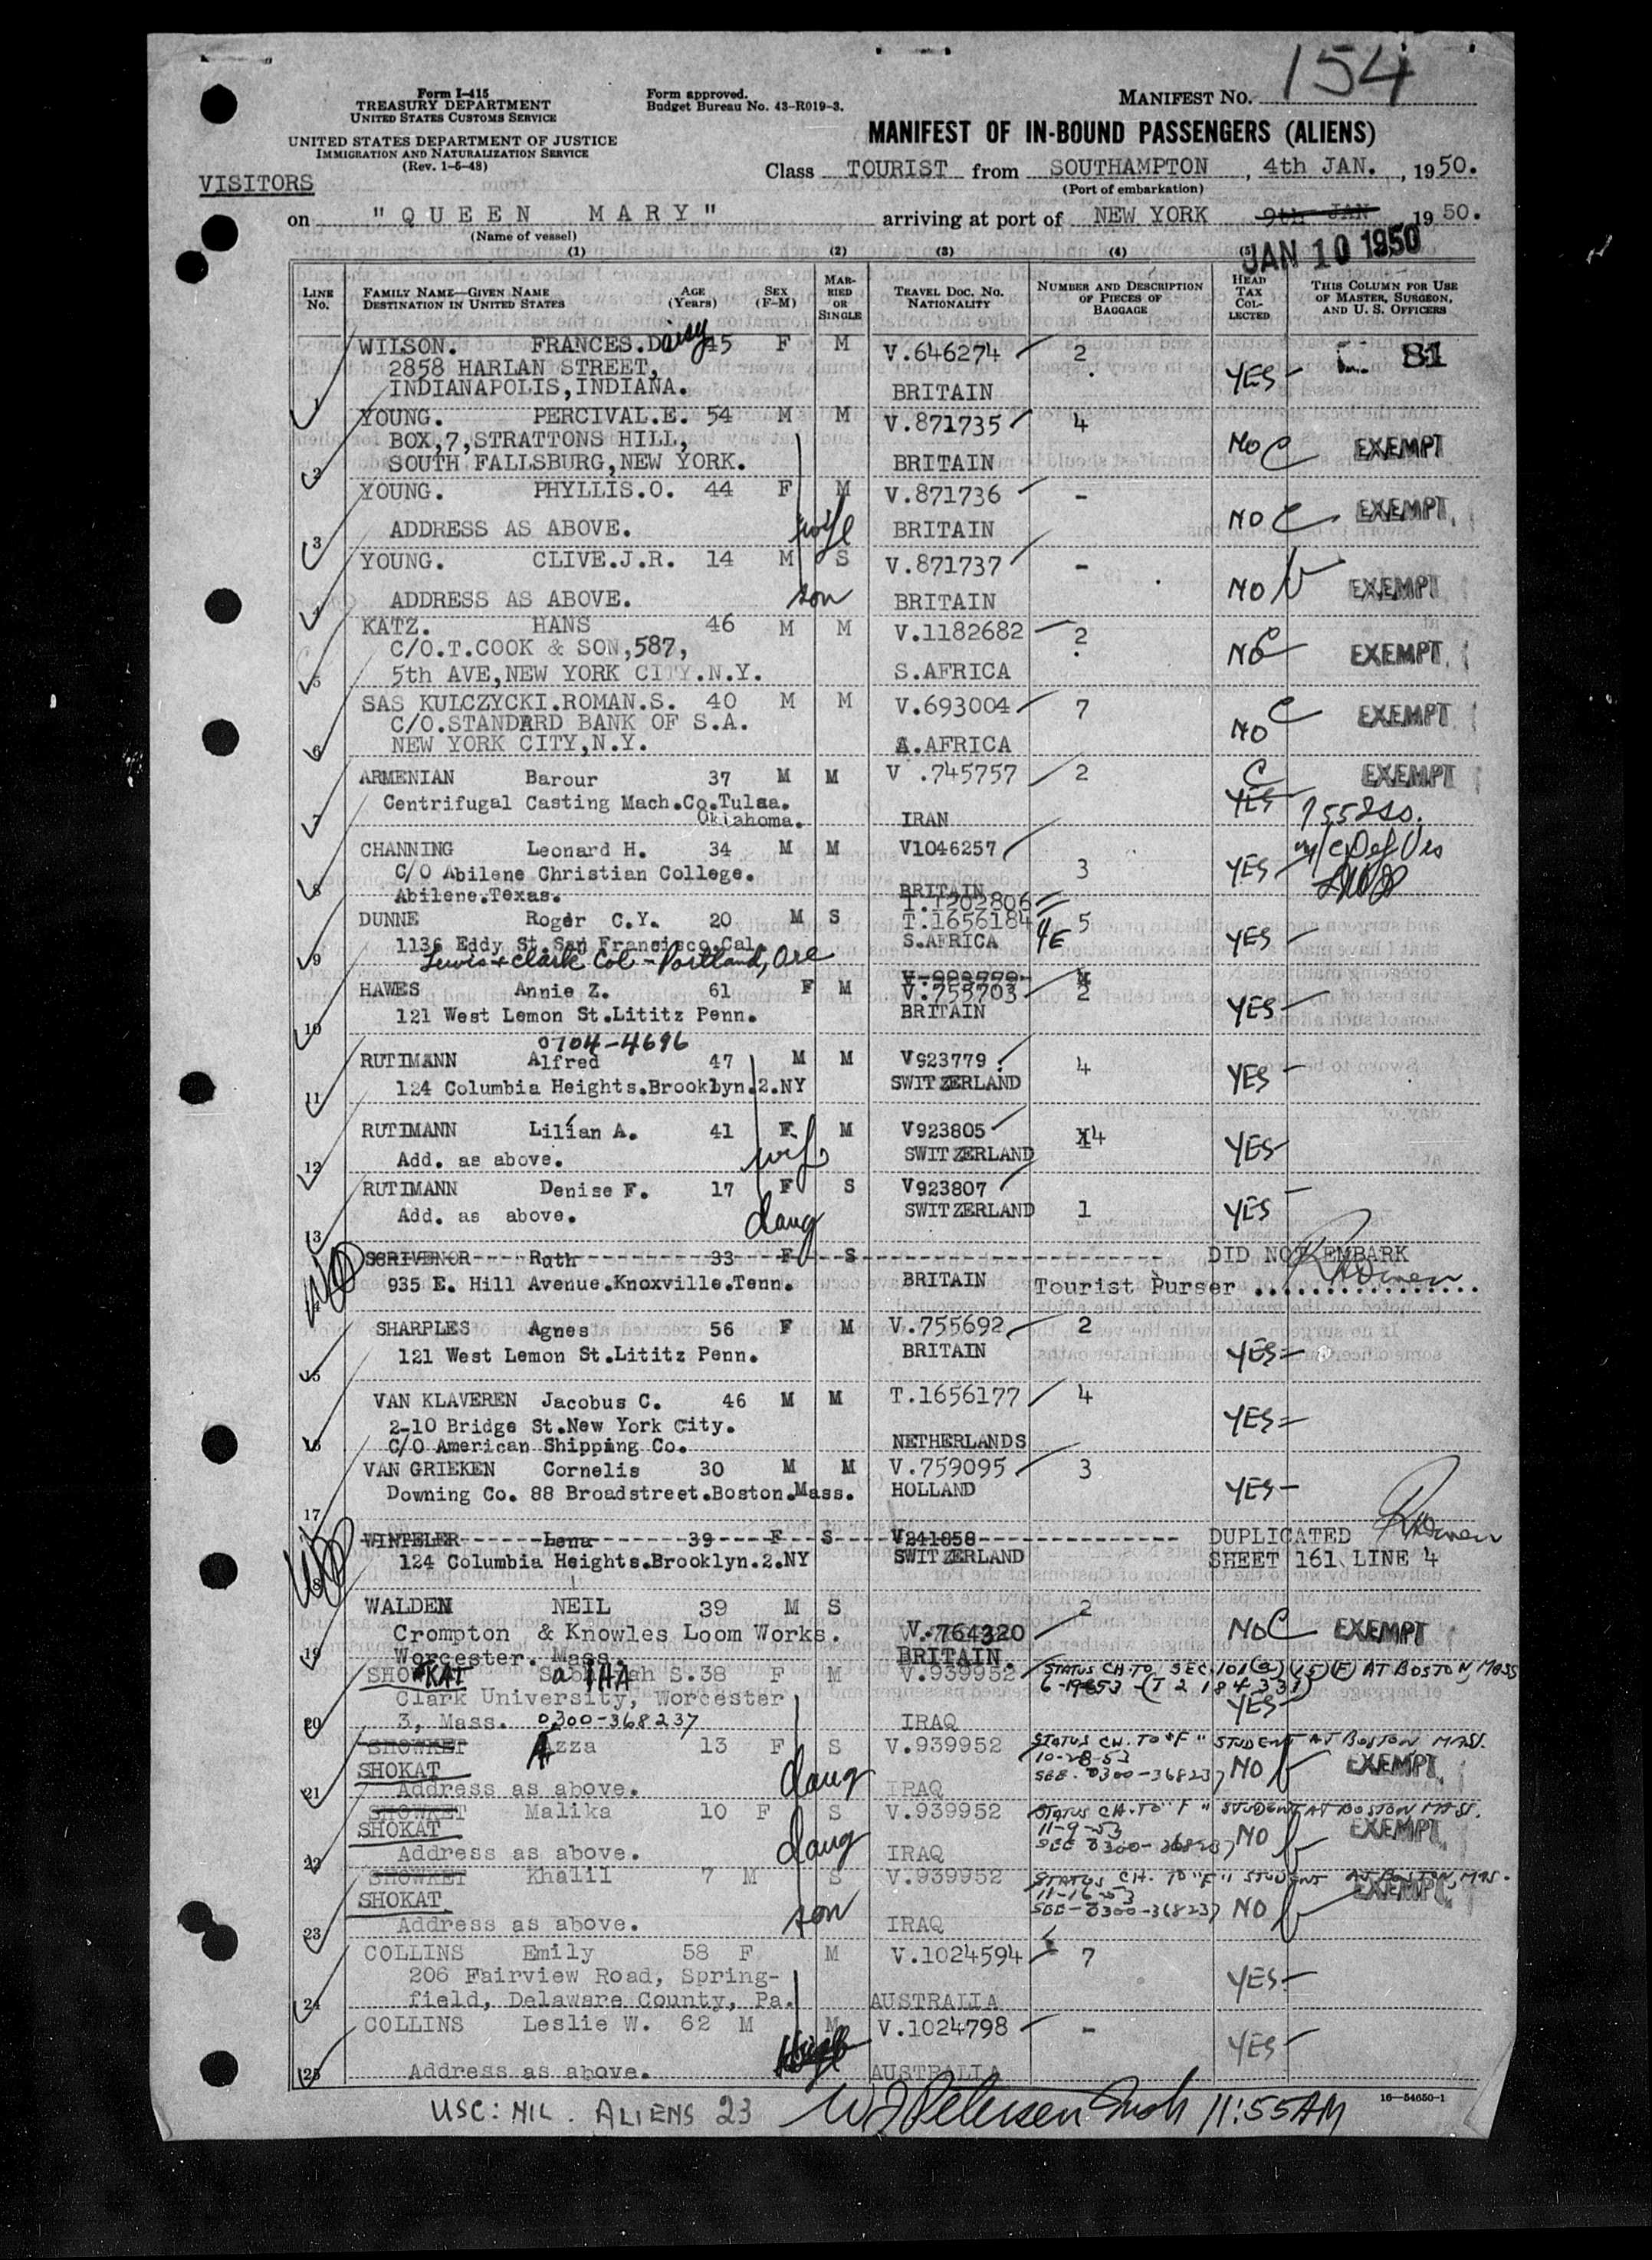 154
Form I-415
TREASURY DEPARTMENT
UNITED STATES CUSTOMS SERVICE
Form approved.
Budget Bureau No. 43-R019-3.
MANIFEST NO.
UNITED STATES DEPARTMENT OF JUSTICE
IMMIGRATION AND NATURALIZATION SERVICE
(Rev. 1-5-48)
MANIFEST OF IN-BOUND PASSENGERS (ALIENS)
VISITORS
Class TOURIST from SOUTHAMPTON, 4th JAN., 1950.
(Port of embarkation)
on "QUEEN MARY" arriving at port of NEW YORK 9th JAN 1950.
(Name of vessel)
JAN 10 1950
(1) (2) (3) (4) (5)
LINE No. FAMILY NAME—GIVEN NAME DESTINATION IN UNITED STATES AGE (Years) SEX (F-M) MARRIED OR SINGLE TRAVEL DOC. NO. NATIONALITY NUMBER AND DESCRIPTION OF PIECES OF BAGGAGE HEAD TAX COLLECTED THIS COLUMN FOR USE OF MASTER, SURGEON, AND U. S. OFFICERS
1 WILSON. FRANCES.Daisy 45 F M V.646274 2 YES 81
2858 HARLAN STREET,
INDIANAPOLIS,INDIANA. BRITAIN
2 YOUNG. PERCIVAL.E. 54 M M V.871735 4 NO C EXEMPT
BOX,7,STRATTONS HILL,
SOUTH FALLSBURG,NEW YORK. BRITAIN
3 YOUNG. PHYLLIS.O. 44 F M V.871736 - NO C EXEMPT
ADDRESS AS ABOVE. wife BRITAIN
4 YOUNG. CLIVE.J.R. 14 M S V.871737 - NO EXEMPT
ADDRESS AS ABOVE. son BRITAIN
5 KATZ. HANS 46 M M V.1182682 2 NO C EXEMPT
C/O.T.COOK & SON,587,
5th AVE,NEW YORK CITY.N.Y. S.AFRICA
6 SAS KULCZYCKI.ROMAN.S. 40 M M V.693004 7 NO C EXEMPT
C/O.STANDARD BANK OF S.A.
NEW YORK CITY,N.Y. S.AFRICA
7 ARMENIAN Barour 37 M M V .745757 2 YES C EXEMPT
Centrifugal Casting Mach.Co.Tulsa.
Oklahoma. IRAN
8 CHANNING Leonard H. 34 M M V1046257 3 YES
C/O Abilene Christian College.
Abilene.Texas. BRITAIN
T.1202806
9 DUNNE Roger C.Y. 20 M S T.1656184 4E 5 YES
1136 Eddy St.San Francisco.Cal. S.AFRICA
Lewis + Clark Col - Portland, Ore
10 HAWES Annie Z. 61 F M V.755703 2 YES
121 West Lemon St.Lititz Penn. BRITAIN
0704-4696
11 RUTIMANN Alfred 47 M M V923779 4 YES
124 Columbia Heights.Brooklyn.2.NY SWITZERLAND
12 RUTIMANN Lilian A. 41 F M V923805 4 YES
Add. as above. wife SWITZERLAND
13 RUTIMANN Denise F. 17 F S V923807 1 YES
Add. as above. daug SWITZERLAND
14 SCRIVENOR Ruth 33 F S DID NOT EMBARK
935 E. Hill Avenue.Knoxville.Tenn. BRITAIN Tourist Purser
15 SHARPLES Agnes 56 F M V.755692 2 YES
121 West Lemon St.Lititz Penn. BRITAIN
16 VAN KLAVEREN Jacobus C. 46 M M T.1656177 4 YES
2-10 Bridge St.New York City.
C/O American Shipping Co. NETHERLANDS
17 VAN GRIEKEN Cornelis 30 M M V.759095 3 YES
Downing Co. 88 Broadstreet.Boston.Mass. HOLLAND
18 WINTELER Lena 39 F S V241858 DUPLICATED
124 Columbia Heights.Brooklyn.2.NY SWITZERLAND SHEET 161 LINE 4
19 WALDEN NEIL 39 M S 2 NO C EXEMPT
Crompton & Knowles Loom Works. V.764320
Worcester. Mass. BRITAIN.
20 SHOKAT S.38 F M V.939952 STATUS CH. TO SEC. 101(a)(15)(F) AT BOSTON, MASS
Clark University, Worcester YES
3, Mass. 0300-368237 IRAQ
21 SHOWKET Azza 13 F S V.939952 STATUS CH. TO "F" STUDENT AT BOSTON MASS.
10-28-53
SHOKAT SEE. 0300-368237 NO EXEMPT
Address as above. daug IRAQ
22 SHOWKET Malika 10 F S V.939952 STATUS CH. TO "F" STUDENT AT BOSTON MASS.
11-9-53
SHOKAT SEE 0300-368237 NO EXEMPT
Address as above. daug IRAQ
23 SHOWKET Khalil 7 M S V.939952 STATUS CH. TO "F" STUDENT AT BOSTON, MAS.
11-16-53
SHOKAT SEE-0300-368237 NO EXEMPT
Address as above. son IRAQ
24 COLLINS Emily 58 F M V.1024594 7 YES
206 Fairview Road, Spring-
field, Delaware County, Pa. AUSTRALIA
25 COLLINS Leslie W. 62 M M V.1024798 - YES
Address as above. AUSTRALIA
16—54650-1
USC: NIL. ALIENS 23 11:55 AM